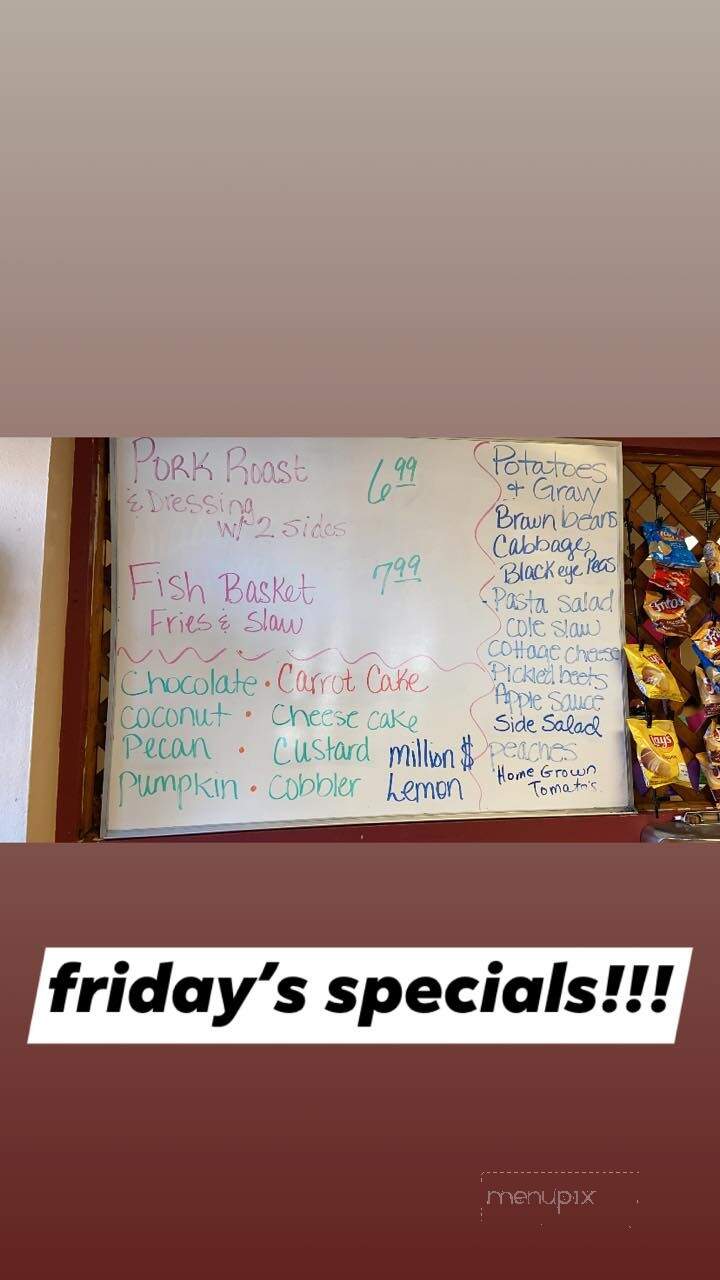 Pork Roast 6.99
& Dressing
w/ 2 sides
Fish Basket 7.99
Fries & Slaw
Chocolate • Carrot Cake
Coconut • Cheese cake
Pecan • Custard million $
Pumpkin • Cobbler Lemon
Potatoes
& Gravy
Brown beans
Cabbage
Blackeye Peas
Pasta Salad
Cole slaw
Cottage cheese
Pickled beets
Apple Sauce
Side Salad
peaches
Home Grown
Tomato's
Fritos
Lay's
friday's specials!!!
menupix